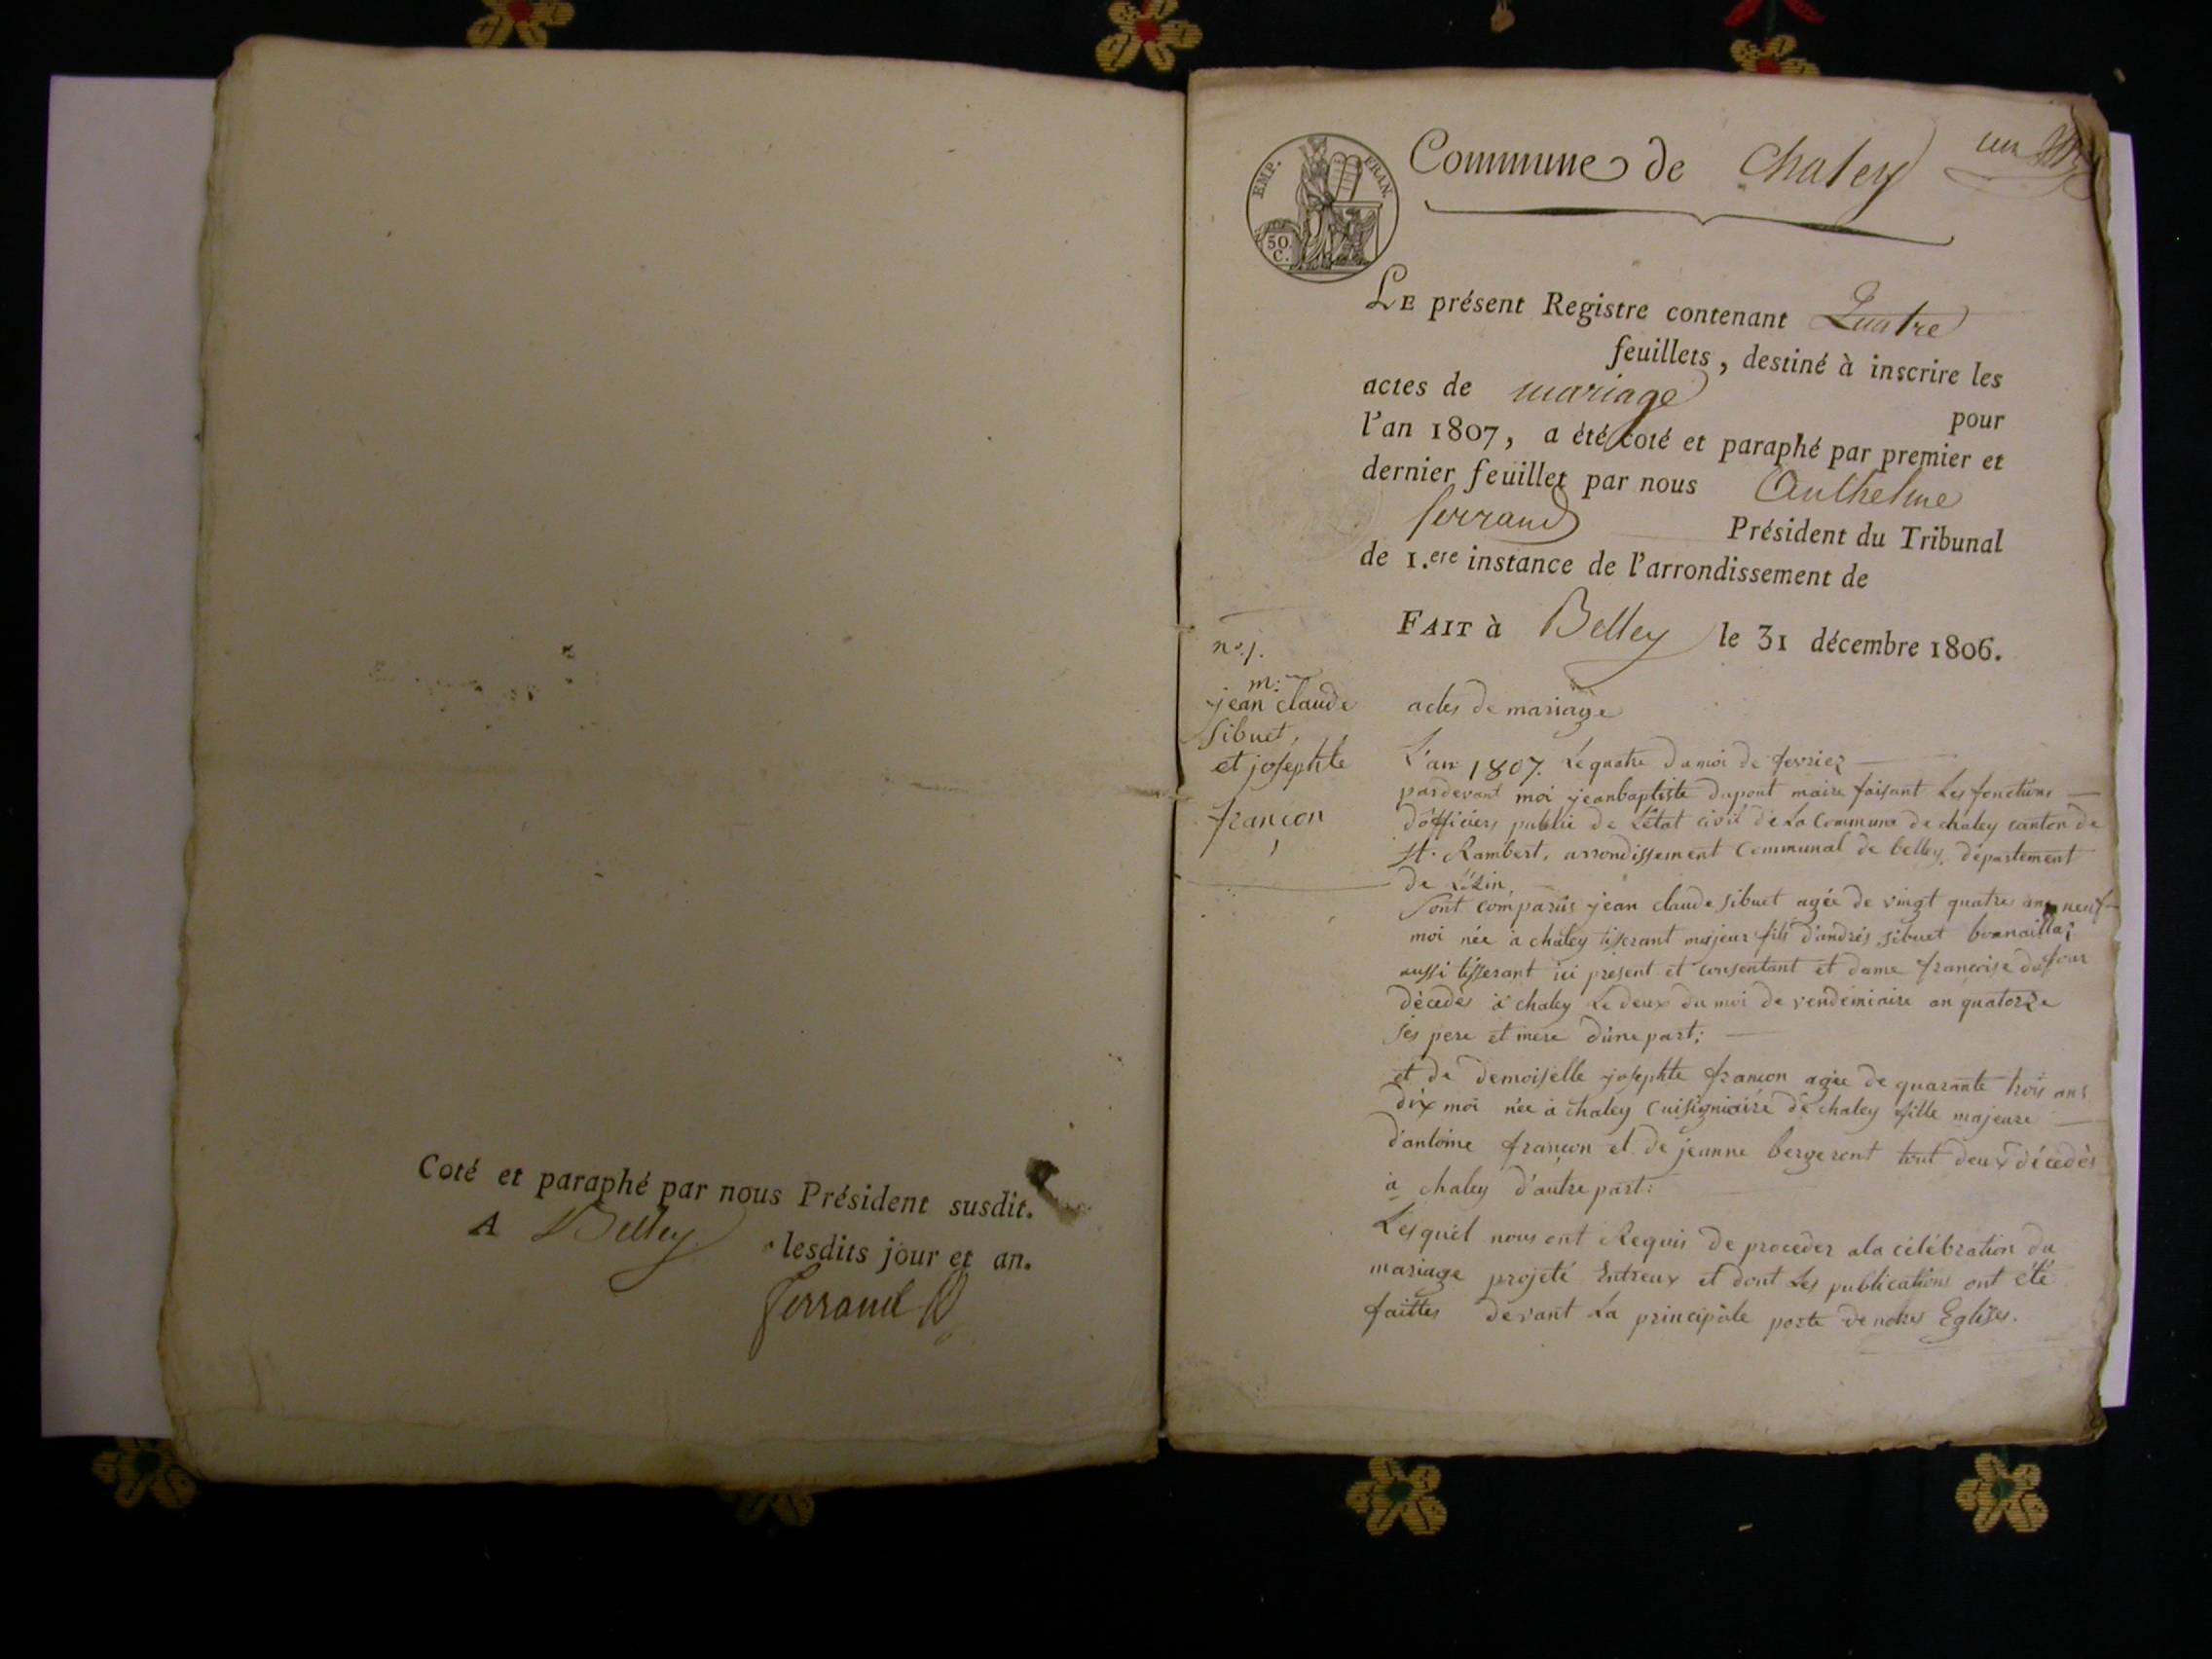 Coté et paraphé par nous Président susdit.
A Belley lesdits jour et an.
Ferrand
EMP. FRAN.
50. C.
Commune de Chaley
un
LE présent Registre contenant Quatre
feuillets, destiné à inscrire les
actes de mariage pour
l'an 1807, a été coté et paraphé par premier et
dernier feuillet par nous Anthelme
ferrand Président du Tribunal
de 1.ere instance de l'arrondissement de
FAIT à Belley le 31 décembre 1806.
n.º 1.
m:
jean claude
Sibuet,
et josephte
françon
actes de mariage
L'an 1807. Le quatre du moi de fevrier
pardevant moi jeanbaptiste dupont maire faisant Les fonctions
d'officiers public de L'état civil de La Commune de chaley canton de
St. Rambert, arrondissement Communal de belley, département
de L'ain,
Sont comparûs jean claude sibuet agée de vingt quatre ans neuf
moi née à chaley tiserant majeur fils d'andrés sibuet
aussi tisserant ici present et consentant et dame francoise dufour
décédés à chaley Le deux du moi de vendémiaire an quatorze
ses pere et mere d'une part;
et de demoiselle josephte françon agée de quarante trois ans
dix moi née à chaley Cuisigniaire de chaley fille majeure
d'antoine françon et de jeanne bergeront tout deux décedés
à chaley d'autre part:
Lesquél nous ont Requis de proceder ala célébration du
mariage projeté Entreux et dont Les publications ont été
faittes devant La principâle porte de notres Eglises.